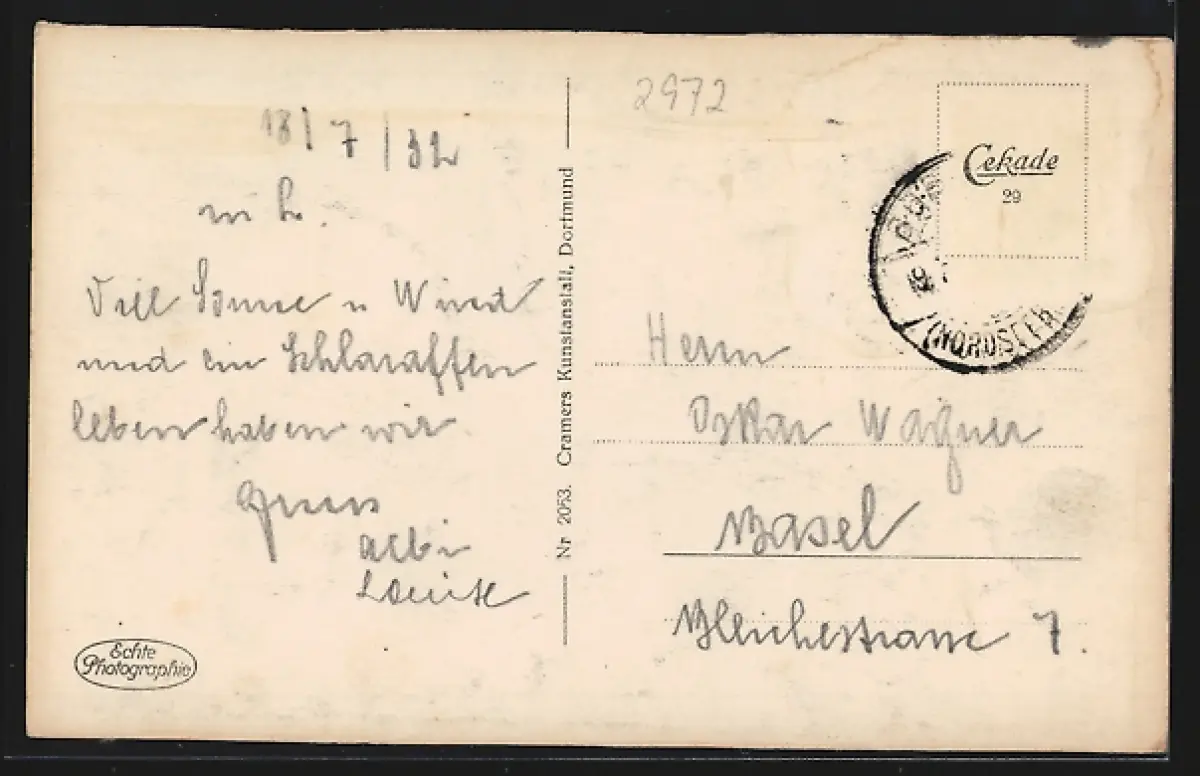 18/7/32
m L.
Viel Sonne u Wind
und ein Schlaraffen
leben haben wir
Gruss
Albi
Louise
Echte
Photographie
Nr 2053. Cramers Kunstanstalt, Dortmund
2972
Cekade
29
19.
(NORDSEE)
Herrn
Oskar Wagner
Basel
Bleichestrasse 7.